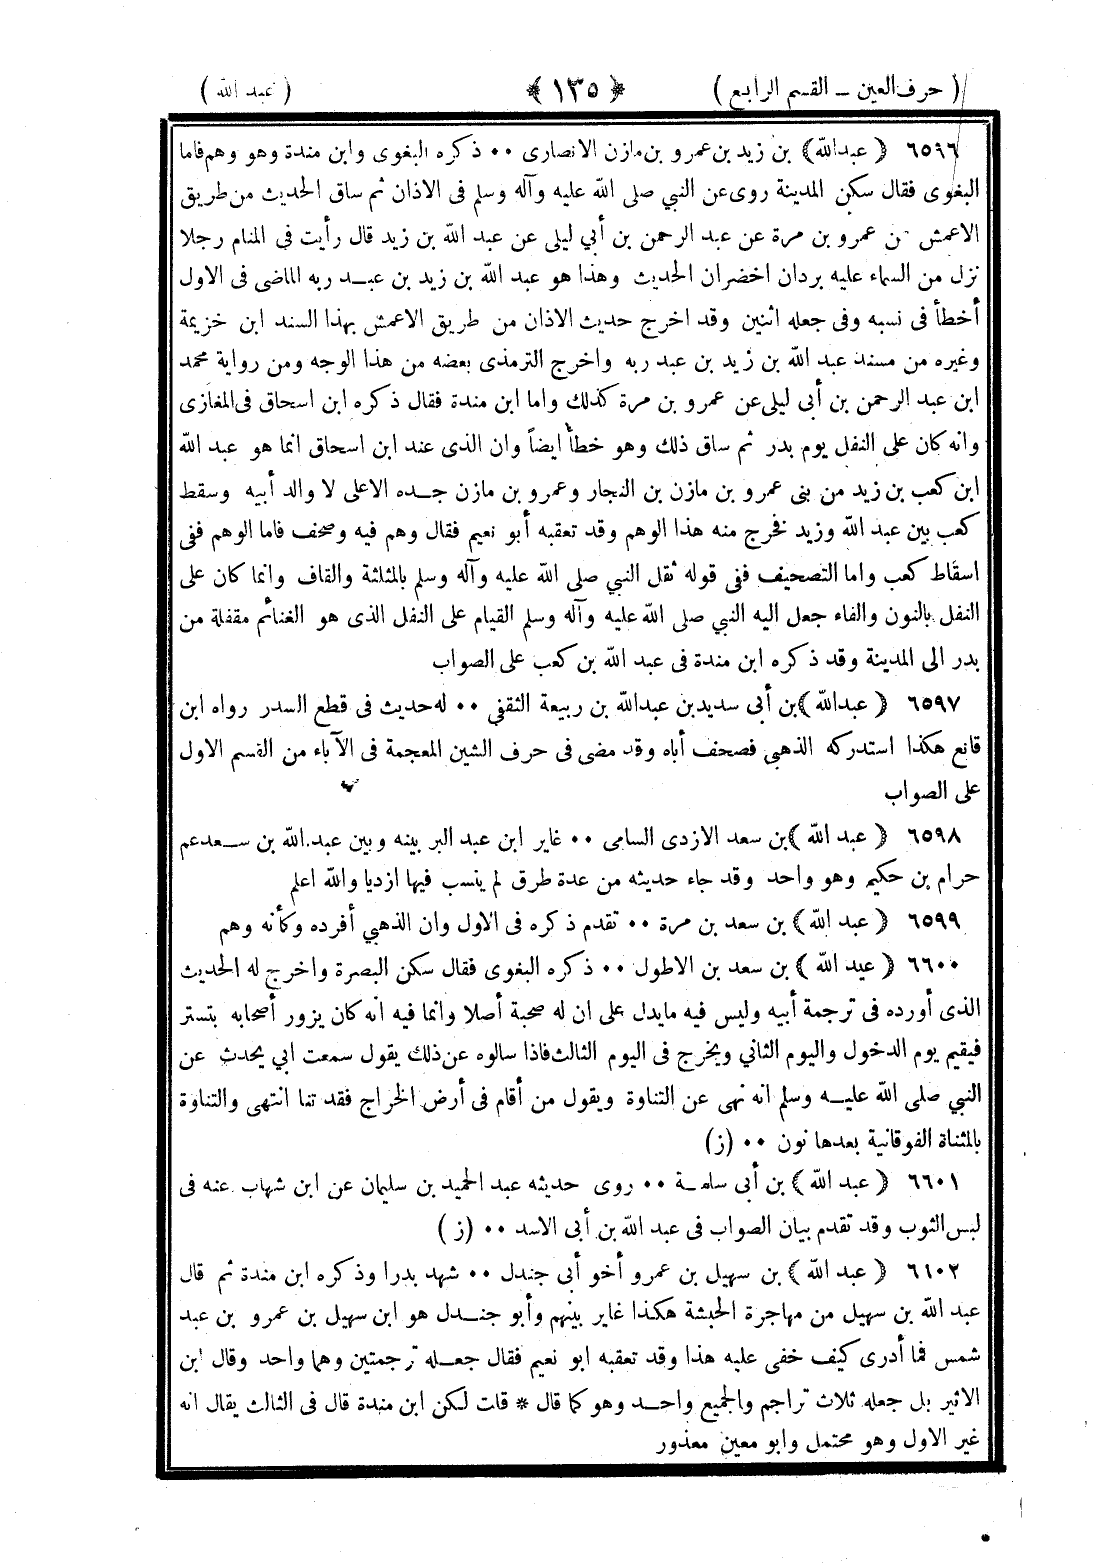 ( حرف العين ـ القسم الرابع )
﴿ ١٣٥ ﴾
( عبد الله )
٦٥٩٦ ﴿ عبدالله ﴾ بن زيد بن عمرو بن مازن الانصارى ٠٠ ذكره البغوى وابن مندة وهو وهم فاما
البغوى فقال سكن المدينة روى عن النبي صلى الله عليه وآله وسلم فى الاذان ثم ساق الحديث من طريق
الاعمش عن عمرو بن مرة عن عبد الرحمن بن أبي ليلى عن عبد الله بن زيد قال رأيت فى المنام رجلا
نزل من السماء عليه بردان اخضران الحديث وهذا هو عبد الله بن زيد بن عبـد ربه الماضى فى الاول
أخطأ فى نسبه وفى جعله اثنين وقد اخرج حديث الاذان من طريق الاعمش بهذا السند ابن خزيمة
وغيره من مسند عبد الله بن زيد بن عبد ربه واخرج الترمذى بعضه من هذا الوجه ومن رواية محمد
ابن عبد الرحمن بن أبى ليلى عن عمرو بن مرة كذلك واما ابن مندة فقال ذكره ابن اسحاق فى المغازى
وانه كان على النفل يوم بدر ثم ساق ذلك وهو خطأ ايضاً وان الذى عند ابن اسحاق انما هو عبد الله
ابن كعب بن زيد من بنى عمرو بن مازن بن النجار وعمرو بن مازن جـده الاعلى لا والد أبيه وسقط
كعب بين عبد الله وزيد فخرج منه هذا الوهم وقد تعقبه أبو نعيم فقال وهم فيه وصحف فاما الوهم ففى
اسقاط كعب واما التصحيف ففى قوله ثقل النبي صلى الله عليه وآله وسلم بالمثلثة والقاف وانما كان على
النفل بالنون والفاء جعل اليه النبي صلى الله عليه وآله وسلم القيام على النفل الذى هو الغنائم مقفلة من
بدر الى المدينة وقد ذكره ابن مندة فى عبد الله بن كعب على الصواب
٦٥٩٧ ﴿ عبدالله ﴾ بن أبى سديد بن عبدالله بن ربيعة الثقفي ٠٠ له حديث فى قطع السدر رواه ابن
قانع هكذا استدركه الذهبى فصحف أباه وقد مضى فى حرف الشين المعجمة فى الآباء من القسم الاول
على الصواب
٦٥٩٨ ﴿ عبد الله ﴾ بن سعد الازدى السامى ٠٠ غاير ابن عبد البر بينه وبين عبد الله بن سـعد عم
حرام بن حكيم وهو واحد وقد جاء حديثه من عدة طرق لم ينسب فيها ازديا والله اعلم
٦٥٩٩ ﴿ عبد الله ﴾ بن سعد بن مرة ٠٠ تقدم ذكره فى الاول وان الذهبي أفرده وكأنه وهم
٦٦٠٠ ﴿ عبد الله ﴾ بن سعد بن الاطول ٠٠ ذكره البغوى فقال سكن البصرة واخرج له الحديث
الذى أورده فى ترجمة أبيه وليس فيه مايدل على ان له صحبة أصلا وانما فيه انه كان يزور أصحابه بتستر
فيقيم يوم الدخول واليوم الثاني ويخرج فى اليوم الثالث فاذا سالوه عن ذلك يقول سمعت ابي يحدث عن
النبي صلى الله عليـه وسلم انه نهى عن التناوة ويقول من أقام فى أرض الخراج فقد تنا انتهى والتناوة
بالمثناة الفوقانية بعدها نون ٠٠ (ز)
٦٦٠١ ﴿ عبد الله ﴾ بن أبى سلمـة ٠٠ روى حديثه عبد الحميد بن سليمان عن ابن شهاب عنه فى
لبس الثوب وقد تقدم بيان الصواب فى عبد الله بن أبى الاسد ٠٠ (ز)
٦٦٠٢ ﴿ عبد الله ﴾ بن سهيل بن عمرو أخو أبى جندل ٠٠ شهد بدرا وذكره ابن مندة ثم قال
عبد الله بن سهيل من مهاجرة الحبشة هكذا غاير بينهم وأبو جنـدل هو ابن سهيل بن عمرو بن عبد
شمس فما أدرى كيف خفى عليه هذا وقد تعقبه ابو نعيم فقال جعـله ترجمتين وهما واحد وقال ابن
الاثير بل جعله ثلاث تراجم والجميع واحـد وهو كما قال * قات لكن ابن مندة قال فى الثالث يقال انه
غير الاول وهو محتمل وابو معين معذور